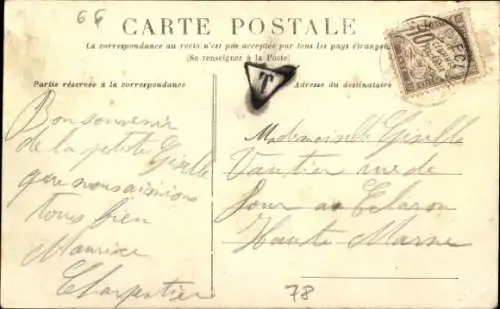 66
CARTE POSTALE
La correspondance au recto n'est pas acceptée par tous les pays étrangers
(Se renseigner à la Poste)
Partie réservée à la correspondance
Adresse du destinataire
T
10
Bon souvenir
de la petite Giselle
que nous aimions
tous bien
Maurice
Charpentier
Mademoiselle Giselle
Vautier rue de
Four a Eclaron
Haute Marne
78